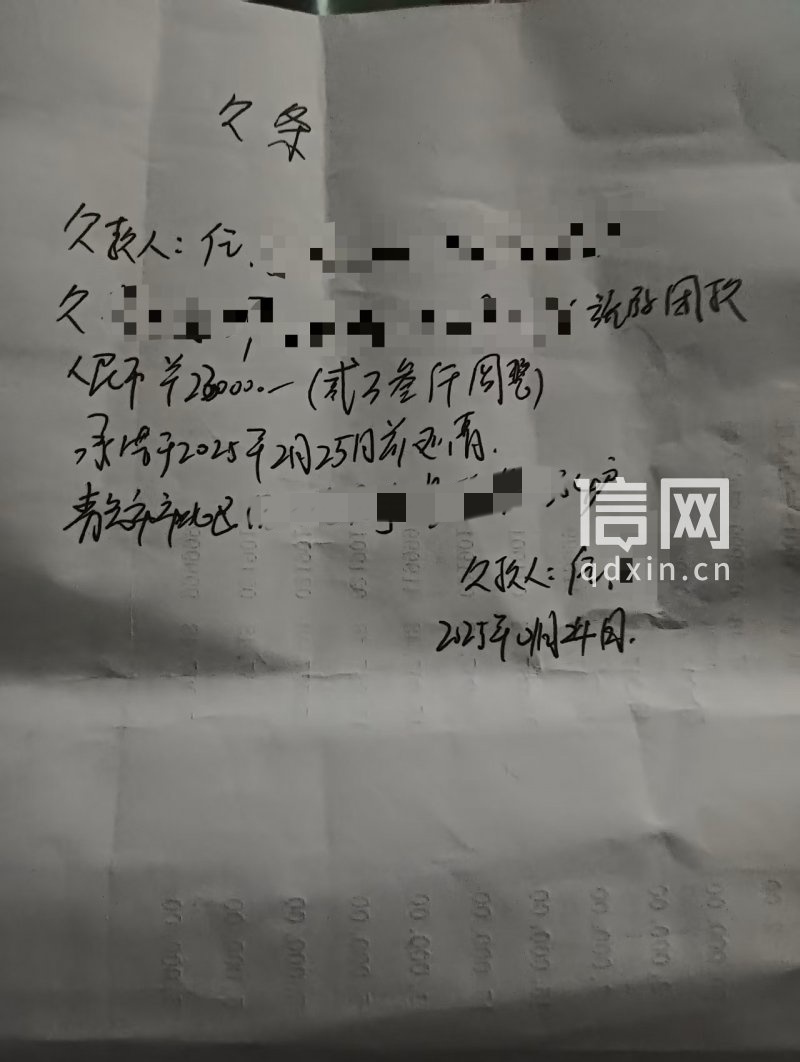 欠条
欠款人：任
欠 旅游团款
人民币￥23000.—(贰万叁仟圆整)
承诺于2025年2月25日前还清.
青岛市市北区
欠款人：任
2025年01月24日.
信网
qdxin.cn